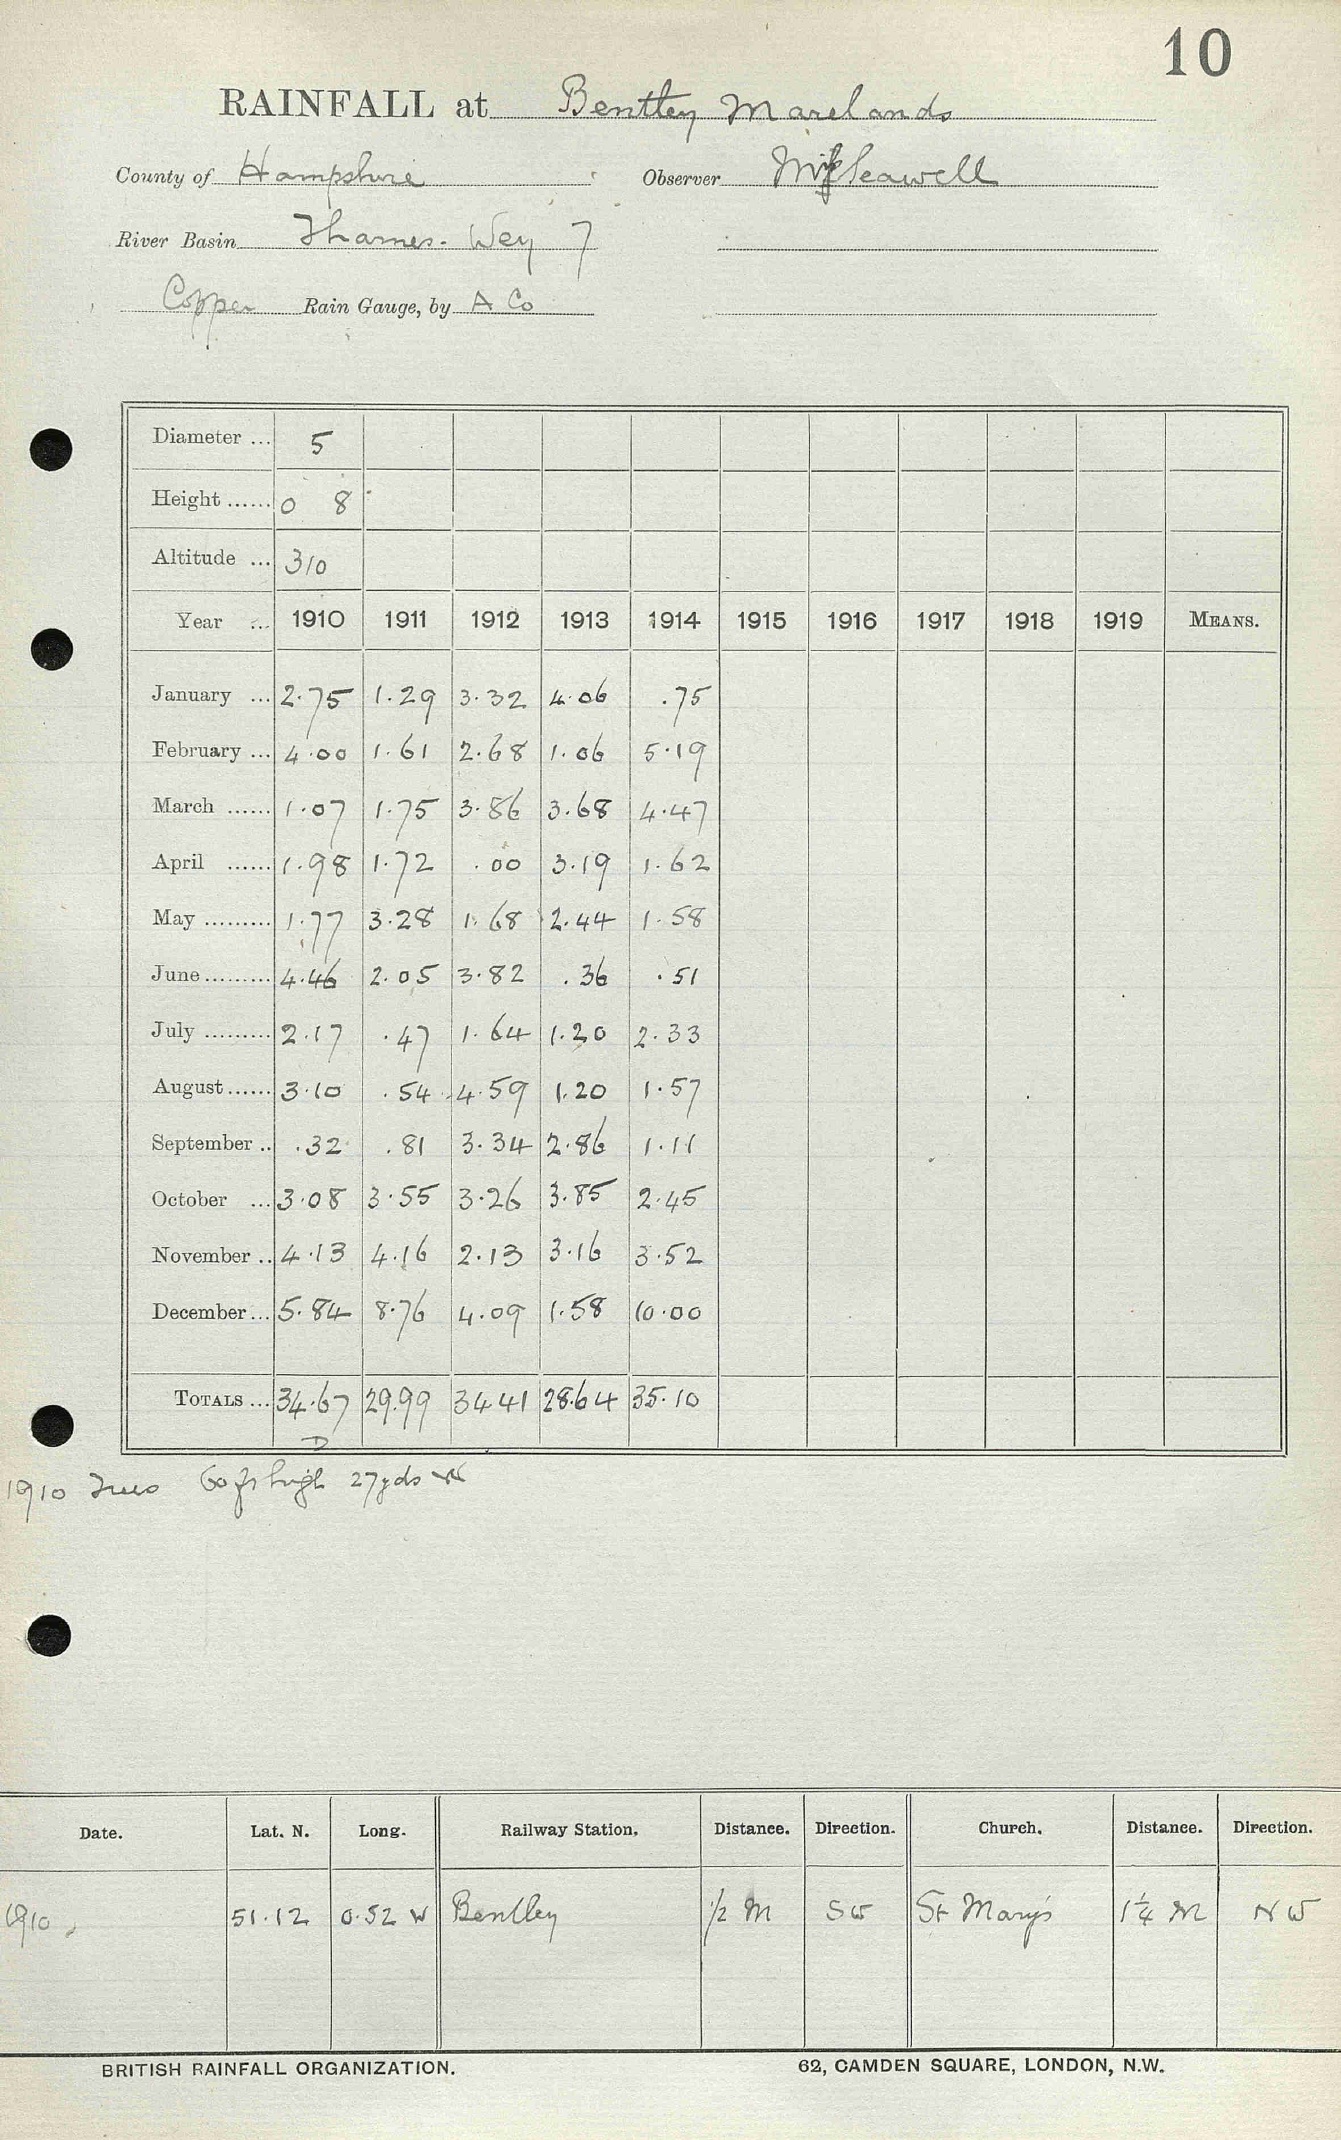 10
RAINFALL at Bentley Marelands
County of Hampshire Observer Seawell
River Basin Thames. Wey 7
Copper Rain Gauge, by A Co
Diameter ... 5
Height ...... 0 8
Altitude ... 310
Year ... 1910 1911 1912 1913 1914 1915 1916 1917 1918 1919 MEANS.
January ... 2.75 1.29 3.32 4.06 .75
February ... 4.00 1.61 2.68 1.06 5.19
March ...... 1.07 1.75 3.86 3.68 4.47
April ...... 1.98 1.72 .00 3.19 1.62
May ......... 1.77 3.28 1.68 2.44 1.58
June ......... 4.46 2.05 3.82 .36 .51
July ......... 2.17 .47 1.64 1.20 2.33
August ...... 3.10 .54 4.59 1.20 1.57
September .. .32 .81 3.34 2.86 1.11
October ... 3.08 3.55 3.26 3.85 2.45
November .. 4.13 4.16 2.13 3.16 3.52
December ... 5.84 8.76 4.09 1.58 10.00
TOTALS ... 34.67 29.99 34 41 28.64 35.10
D
1910 Trees 60 ft high 27 yds W
Date. Lat. N. Long. Railway Station. Distance. Direction. Church. Distance. Direction.
1910 51.12 0.52 W Bentley 1/2 M SW St Mary's 1 1/4 M NW
BRITISH RAINFALL ORGANIZATION. 62, CAMDEN SQUARE, LONDON, N.W.